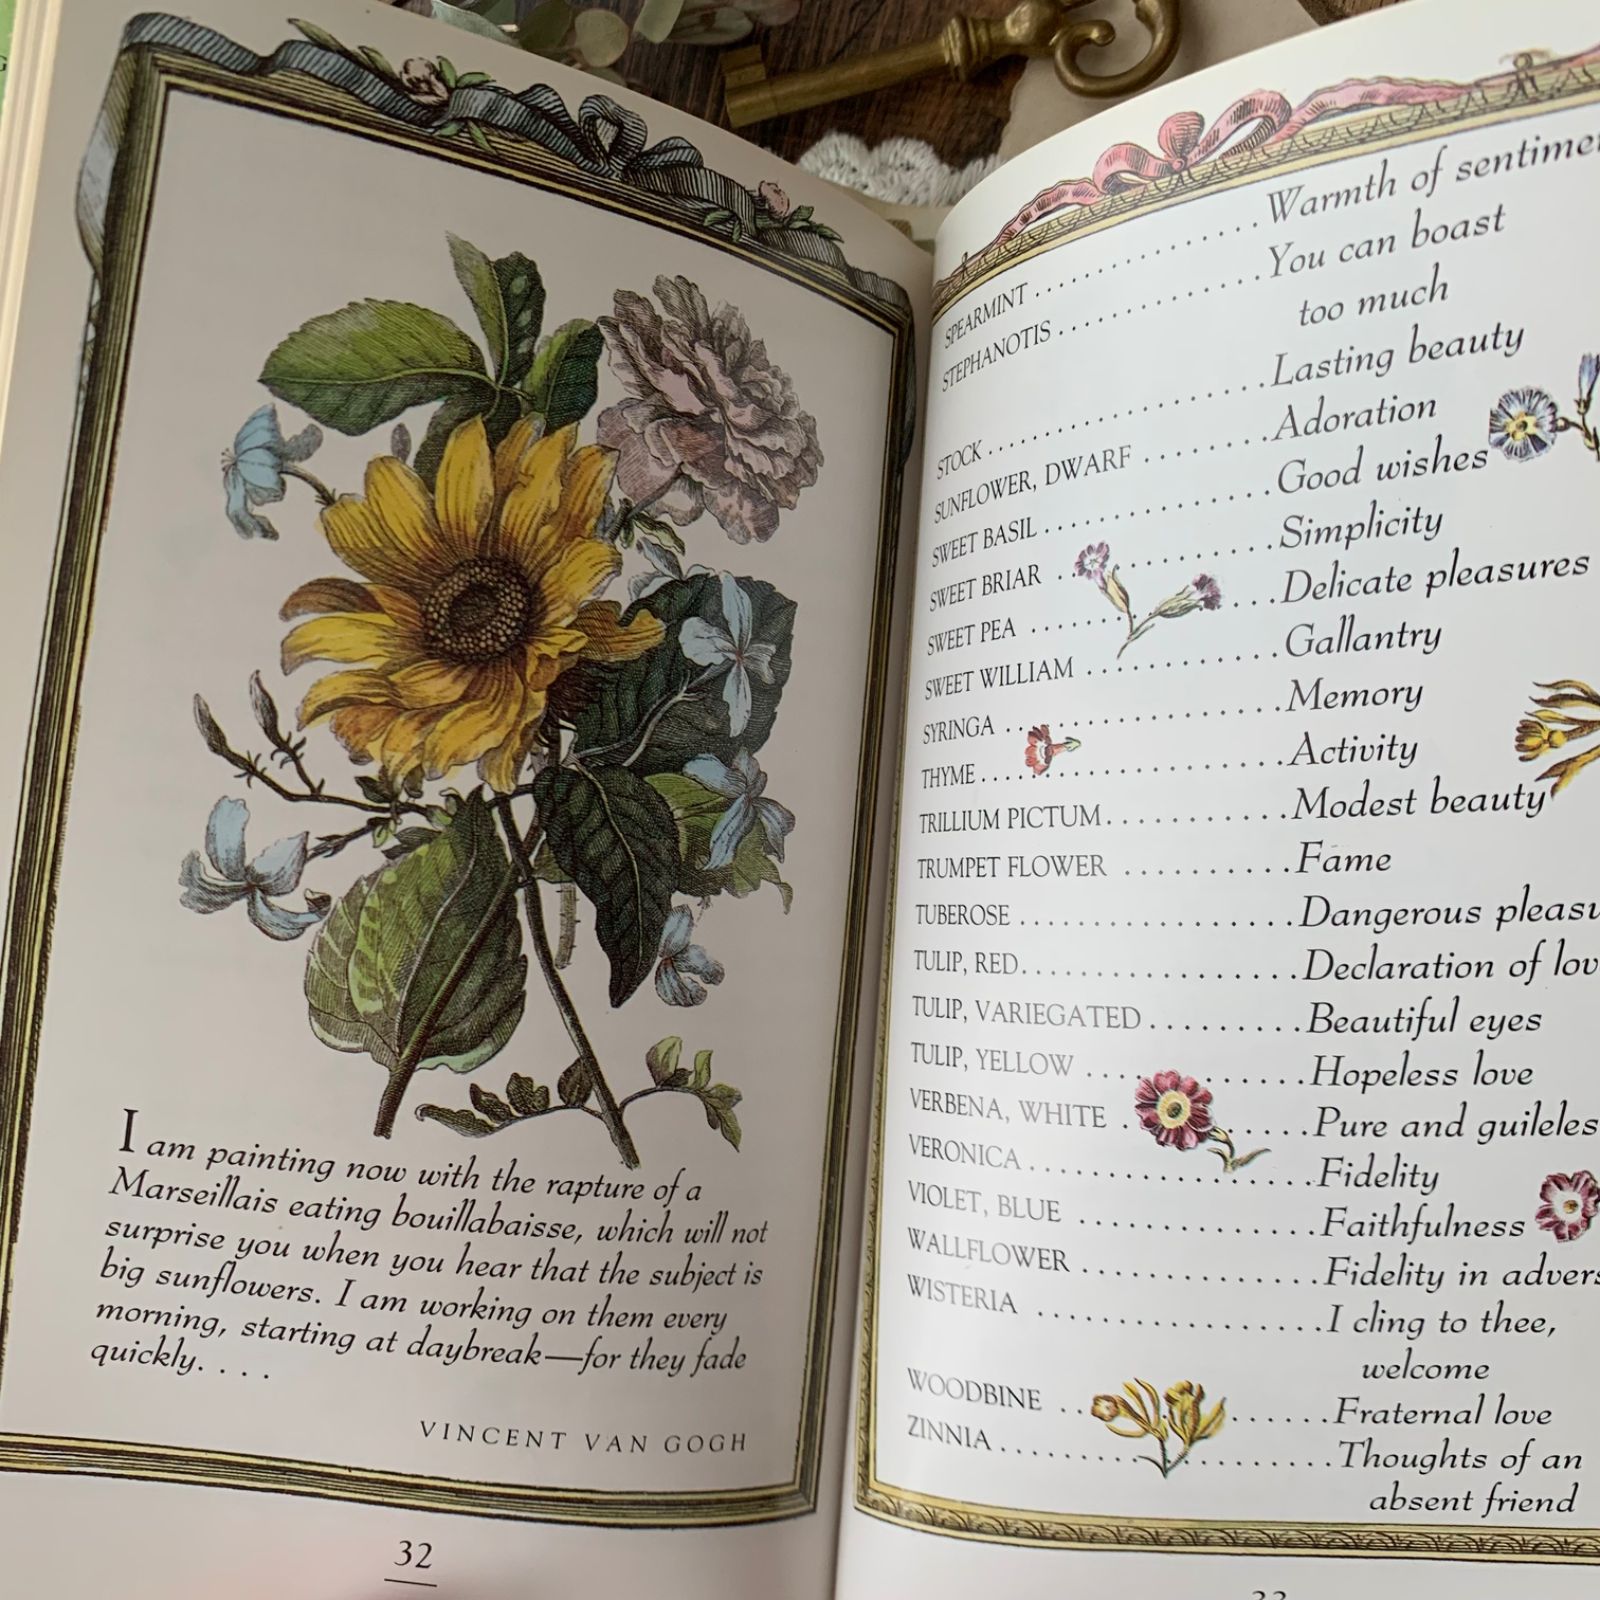 I am painting now with the rapture of a
Marseillais eating bouillabaisse, which will not
surprise you when you hear that the subject is
big sunflowers. I am working on them every
morning, starting at daybreak—for they fade
quickly. . . .
VINCENT VAN GOGH
32
SPEARMINT . . . . . . . . . . . . . . . Warmth of
STEPHANOTIS . . . . . . . . . . . . . You can boast
too much
STOCK . . . . . . . . . . . . . . . . . Lasting beauty
SUNFLOWER, DWARF . . . . . . . . Adoration
SWEET BASIL . . . . . . . . . . . . . . Good wishes
SWEET BRIAR . . . . . . . . . . Simplicity
SWEET PEA . . . . . . . . . . Delicate pleasures
SWEET WILLIAM . . . . . . . . . . . . Gallantry
SYRINGA . . . . . . . . . . . . . . . . Memory
THYME . . . . . . . . . . . . . . . . . Activity
TRILLIUM PICTUM . . . . . . . . . . . Modest beauty
TRUMPET FLOWER . . . . . . . . . . Fame
TUBEROSE . . . . . . . . . . . . . . . . Dangerous
TULIP, RED . . . . . . . . . . . . . . . . Declaration of
TULIP, VARIEGATED . . . . . . . . . Beautiful eyes
TULIP, YELLOW . . . . . . . . . . . Hopeless love
VERBENA, WHITE . . . . . . Pure and
VERONICA . . . . . . . . . . . . . . . . Fidelity
VIOLET, BLUE . . . . . . . . . . . . . . Faithfulness
WALLFLOWER . . . . . . . . . . . . . . Fidelity in
WISTERIA . . . . . . . . . . . . . . . . . I cling to thee,
welcome
WOODBINE . . . . . . . . Fraternal love
ZINNIA . . . . . . . . . . . . . . . . . Thoughts of an
absent friend